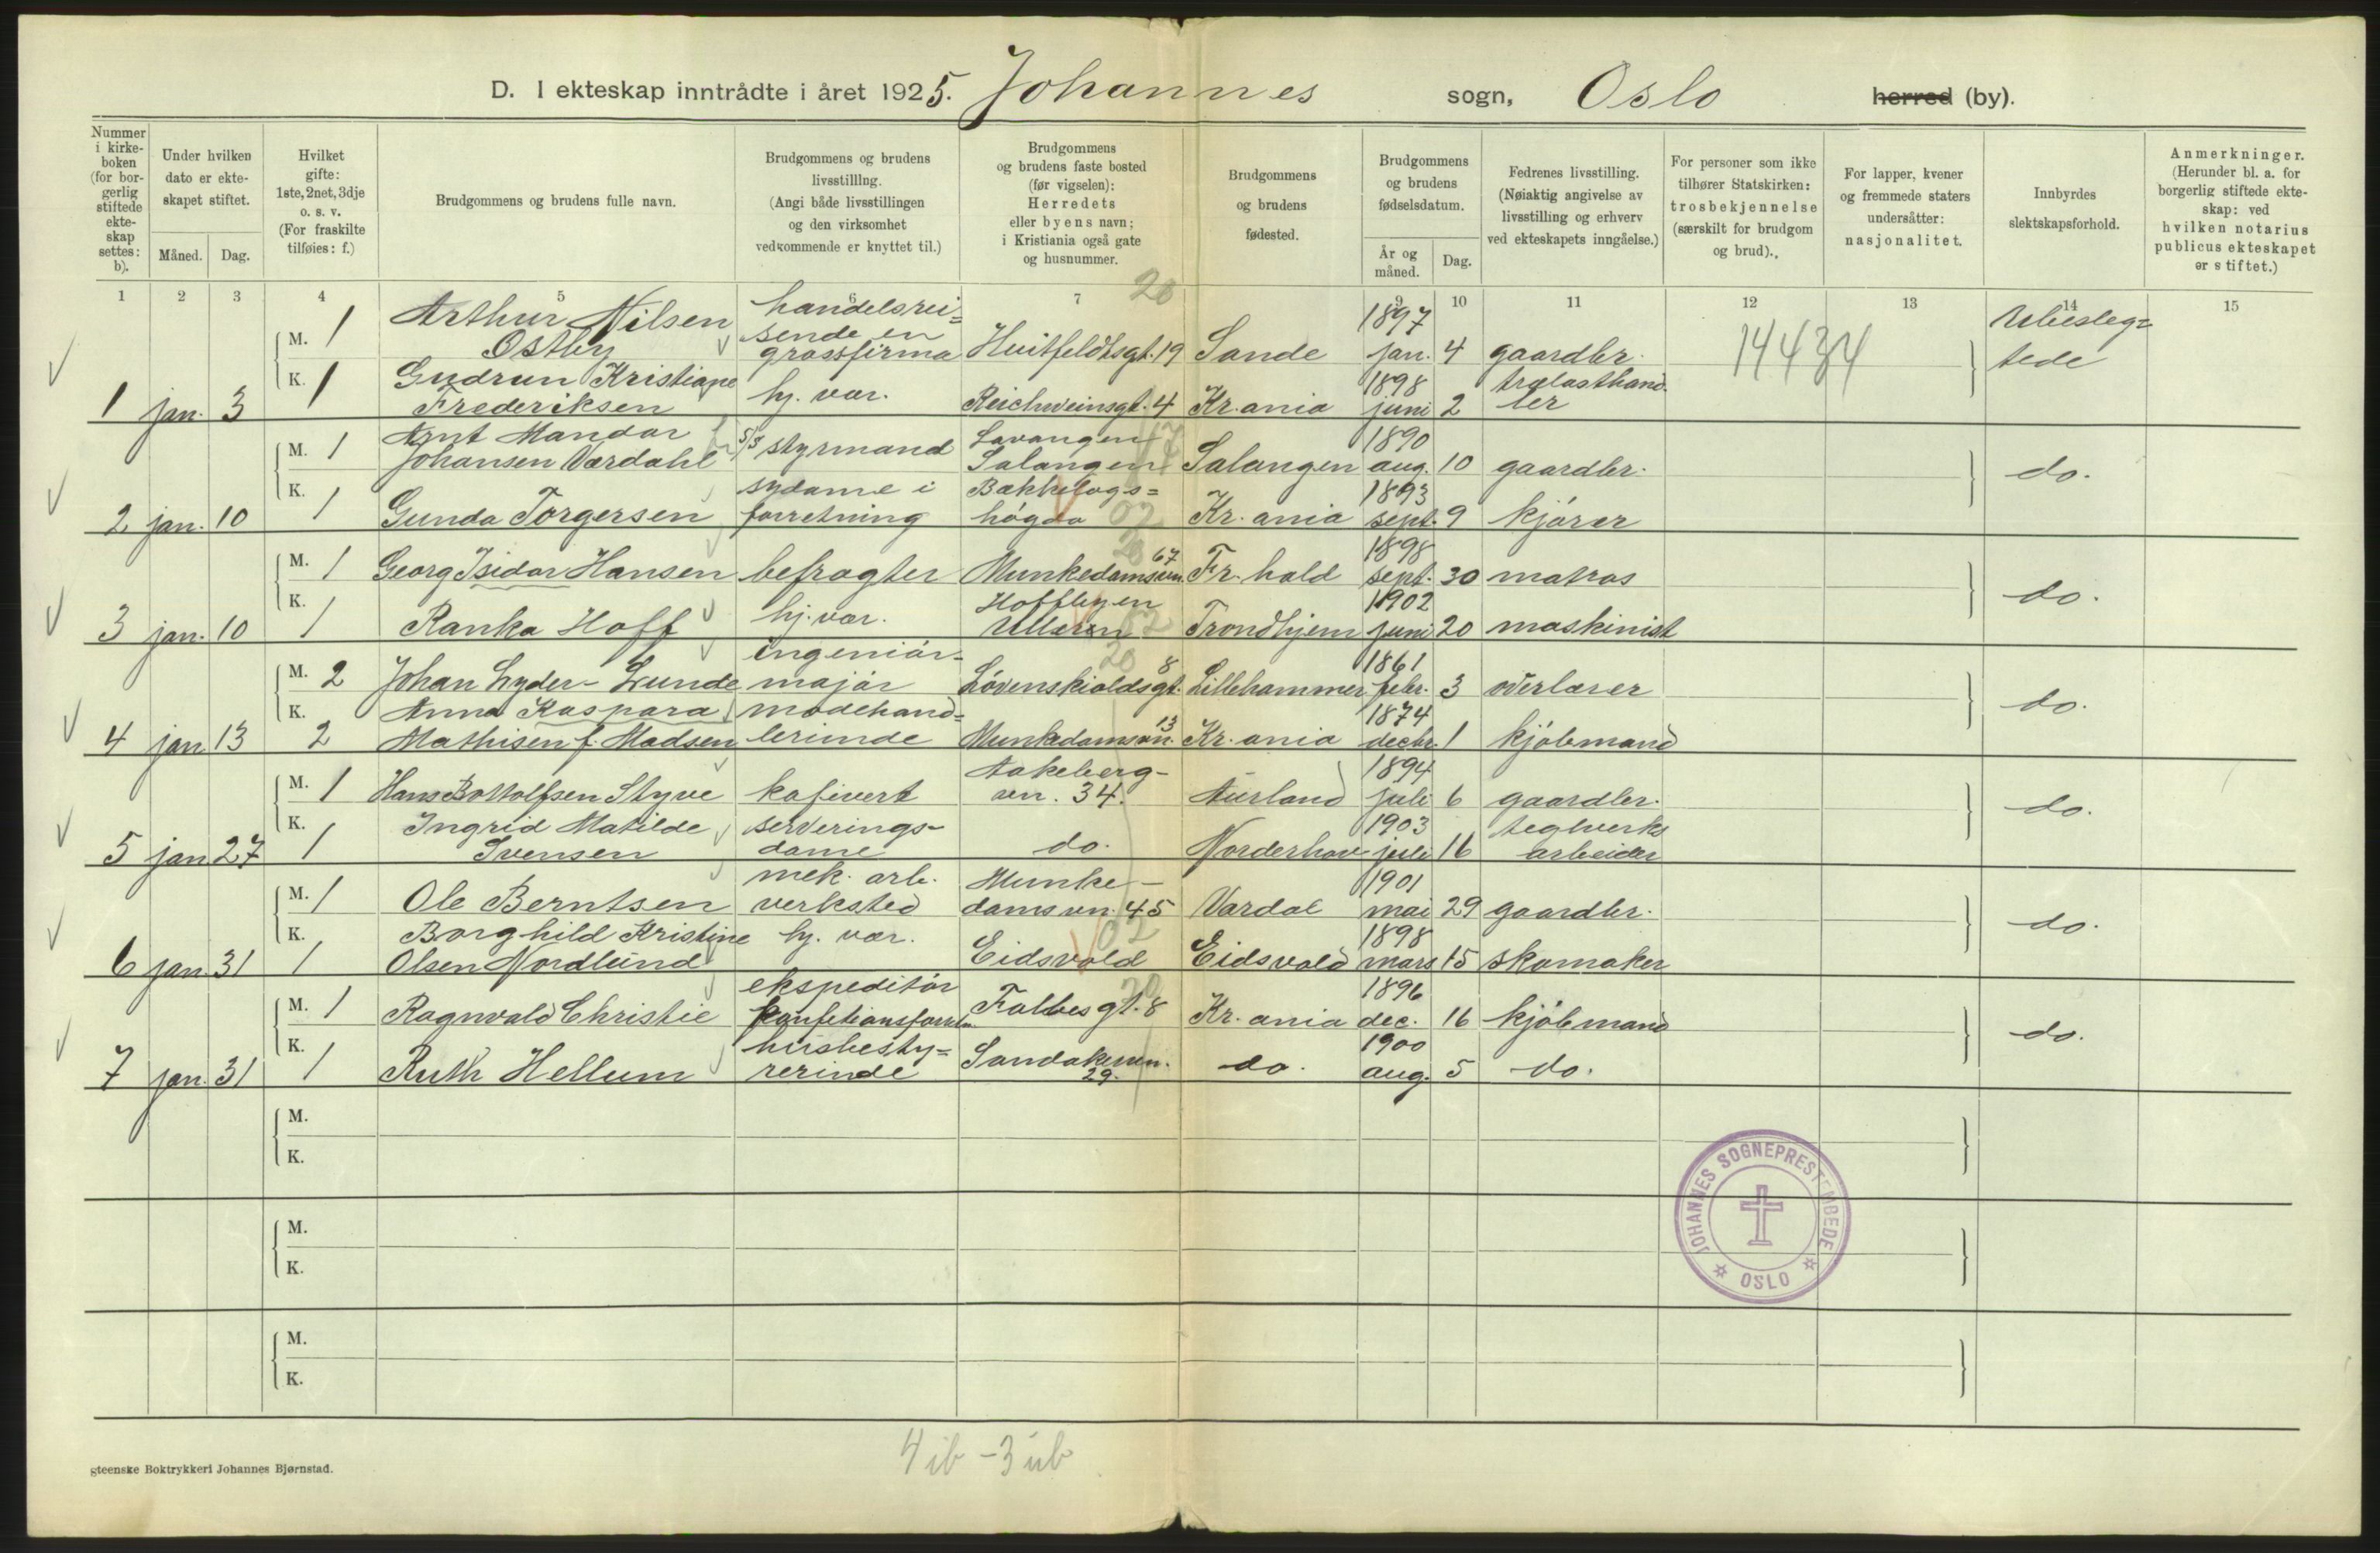 D. I ekteskap inntrådte i året 1925. Johannes sogn, Oslo herred (by).
Nummer i kirkeboken (for borgerlig stiftede ekteskap settes: b).
Under hvilken dato er ekteskapet stiftet.
Måned. Dag.
Hvilket gifte: 1ste, 2net, 3dje o. s. v. (For fraskilte tilføies: f.)
Brudgommens og brudens fulle navn.
Brudgommens og brudens livsstilling. (Angi både livsstillingen og den virksomhet vedkommende er knyttet til.)
Brudgommens og brudens faste bosted (før vigselen): Herredets eller byens navn; i Kristiania også gate og husnummer.
Brudgommens og brudens fødested.
Brudgommens og brudens fødselsdatum.
År og måned. Dag.
Fedrenes livsstilling. (Nøiaktig angivelse av livsstilling og erhverv ved ekteskapets inngåelse.)
For personer som ikke tilhører Statskirken: trosbekjennelse (særskilt for brudgom og brud).
For lapper, kvener og fremmede staters undersåtter: nasjonalitet.
Innbyrdes slektskapsforhold.
Anmerkninger. (Herunder bl. a. for borgerlig stiftede ekteskap: ved hvilken notarius publicus ekteskapet er stiftet.)
1 2 3 4 5 6 7 9 10 11 12 13 14 15
20
M. 1 Arthur Nilsen Østby handelsreisende en grossfirma Huitfeldtsgt. 19 Sande 1897 jan. 4 gaardbr. 14434 Ubeslegtede
1 jan. 3 K. 1 Gudrun Kristiane Frederiksen hj. vær. Reichweinsgt. 4 Kr.ania 1898 juni 2 trælasthandler
M. 1 Arnt Mandor Johansen Værdahl S/S styrmand Lavangen Salangen Salangen 1890 aug. 10 gaardbr. do.
2 jan. 10 K. 1 Gunda Torgersen sydame i forretning Bækkelagshøgda 02 Kr.ania 1893 sept. 9 kjører
M. 1 Georg Isidor Hansen befragter Munkedamsvn. 67 20 Fr.hald 1898 sept. 30 matros do.
3 jan. 10 K. 1 Ranka Hoff hj.vær. Hoffbyen Ullern 02 Trondhjem 1902 juni 20 maskinist
M. 2 Johan Lyder-Lunde ingeniør-major Løvenskioldsgt. 8 20 Lillehammer 1861 febr. 3 overlærer do.
4 jan 13 K. 2 Anna Kaspara Mathisen f. Madsen modehandlerinde Munkedamsvn. 13 Kr.ania 1874 decbr. 1 kjøbmand
M. 1 Hans Bottolfsen Styve kafevert Aakebergvn. 34. Aurland 1894 juli 6 gaardbr. do.
5 jan 27 K. 1 Ingrid Matilde Svensen serveringsdame do. Norderhov 1903 juli 16 teglverksarbeider
M. 1 Ole Berntsen mek. arb. verksted Munkedamsvn. 45 Vardal 1901 mai 29 gaardbr. do.
6 jan. 31 K. 1 Borghild Kristine Olsen Nordlund hj. vær. Eidsvold 02 Eidsvold 1898 mars 15 skomaker
M. 1 Ragnvald Christie ekspeditør konfektionsforretn. Falbesgt. 8 20 Kr.ania 1896 dec. 16 kjøbmand do.
7 jan. 31 K. 1 Ruth Hellum husbestyrerinde Sandakervn. 29. do. 1900 aug. 5 do.
M.
K.
M.
K.
M.
K.
JOHANNES SOGNEPRESTEMBEDE
OSLO
4 ib - 3 ub
gteenske Boktrykkeri Johannes Bjørnstad.